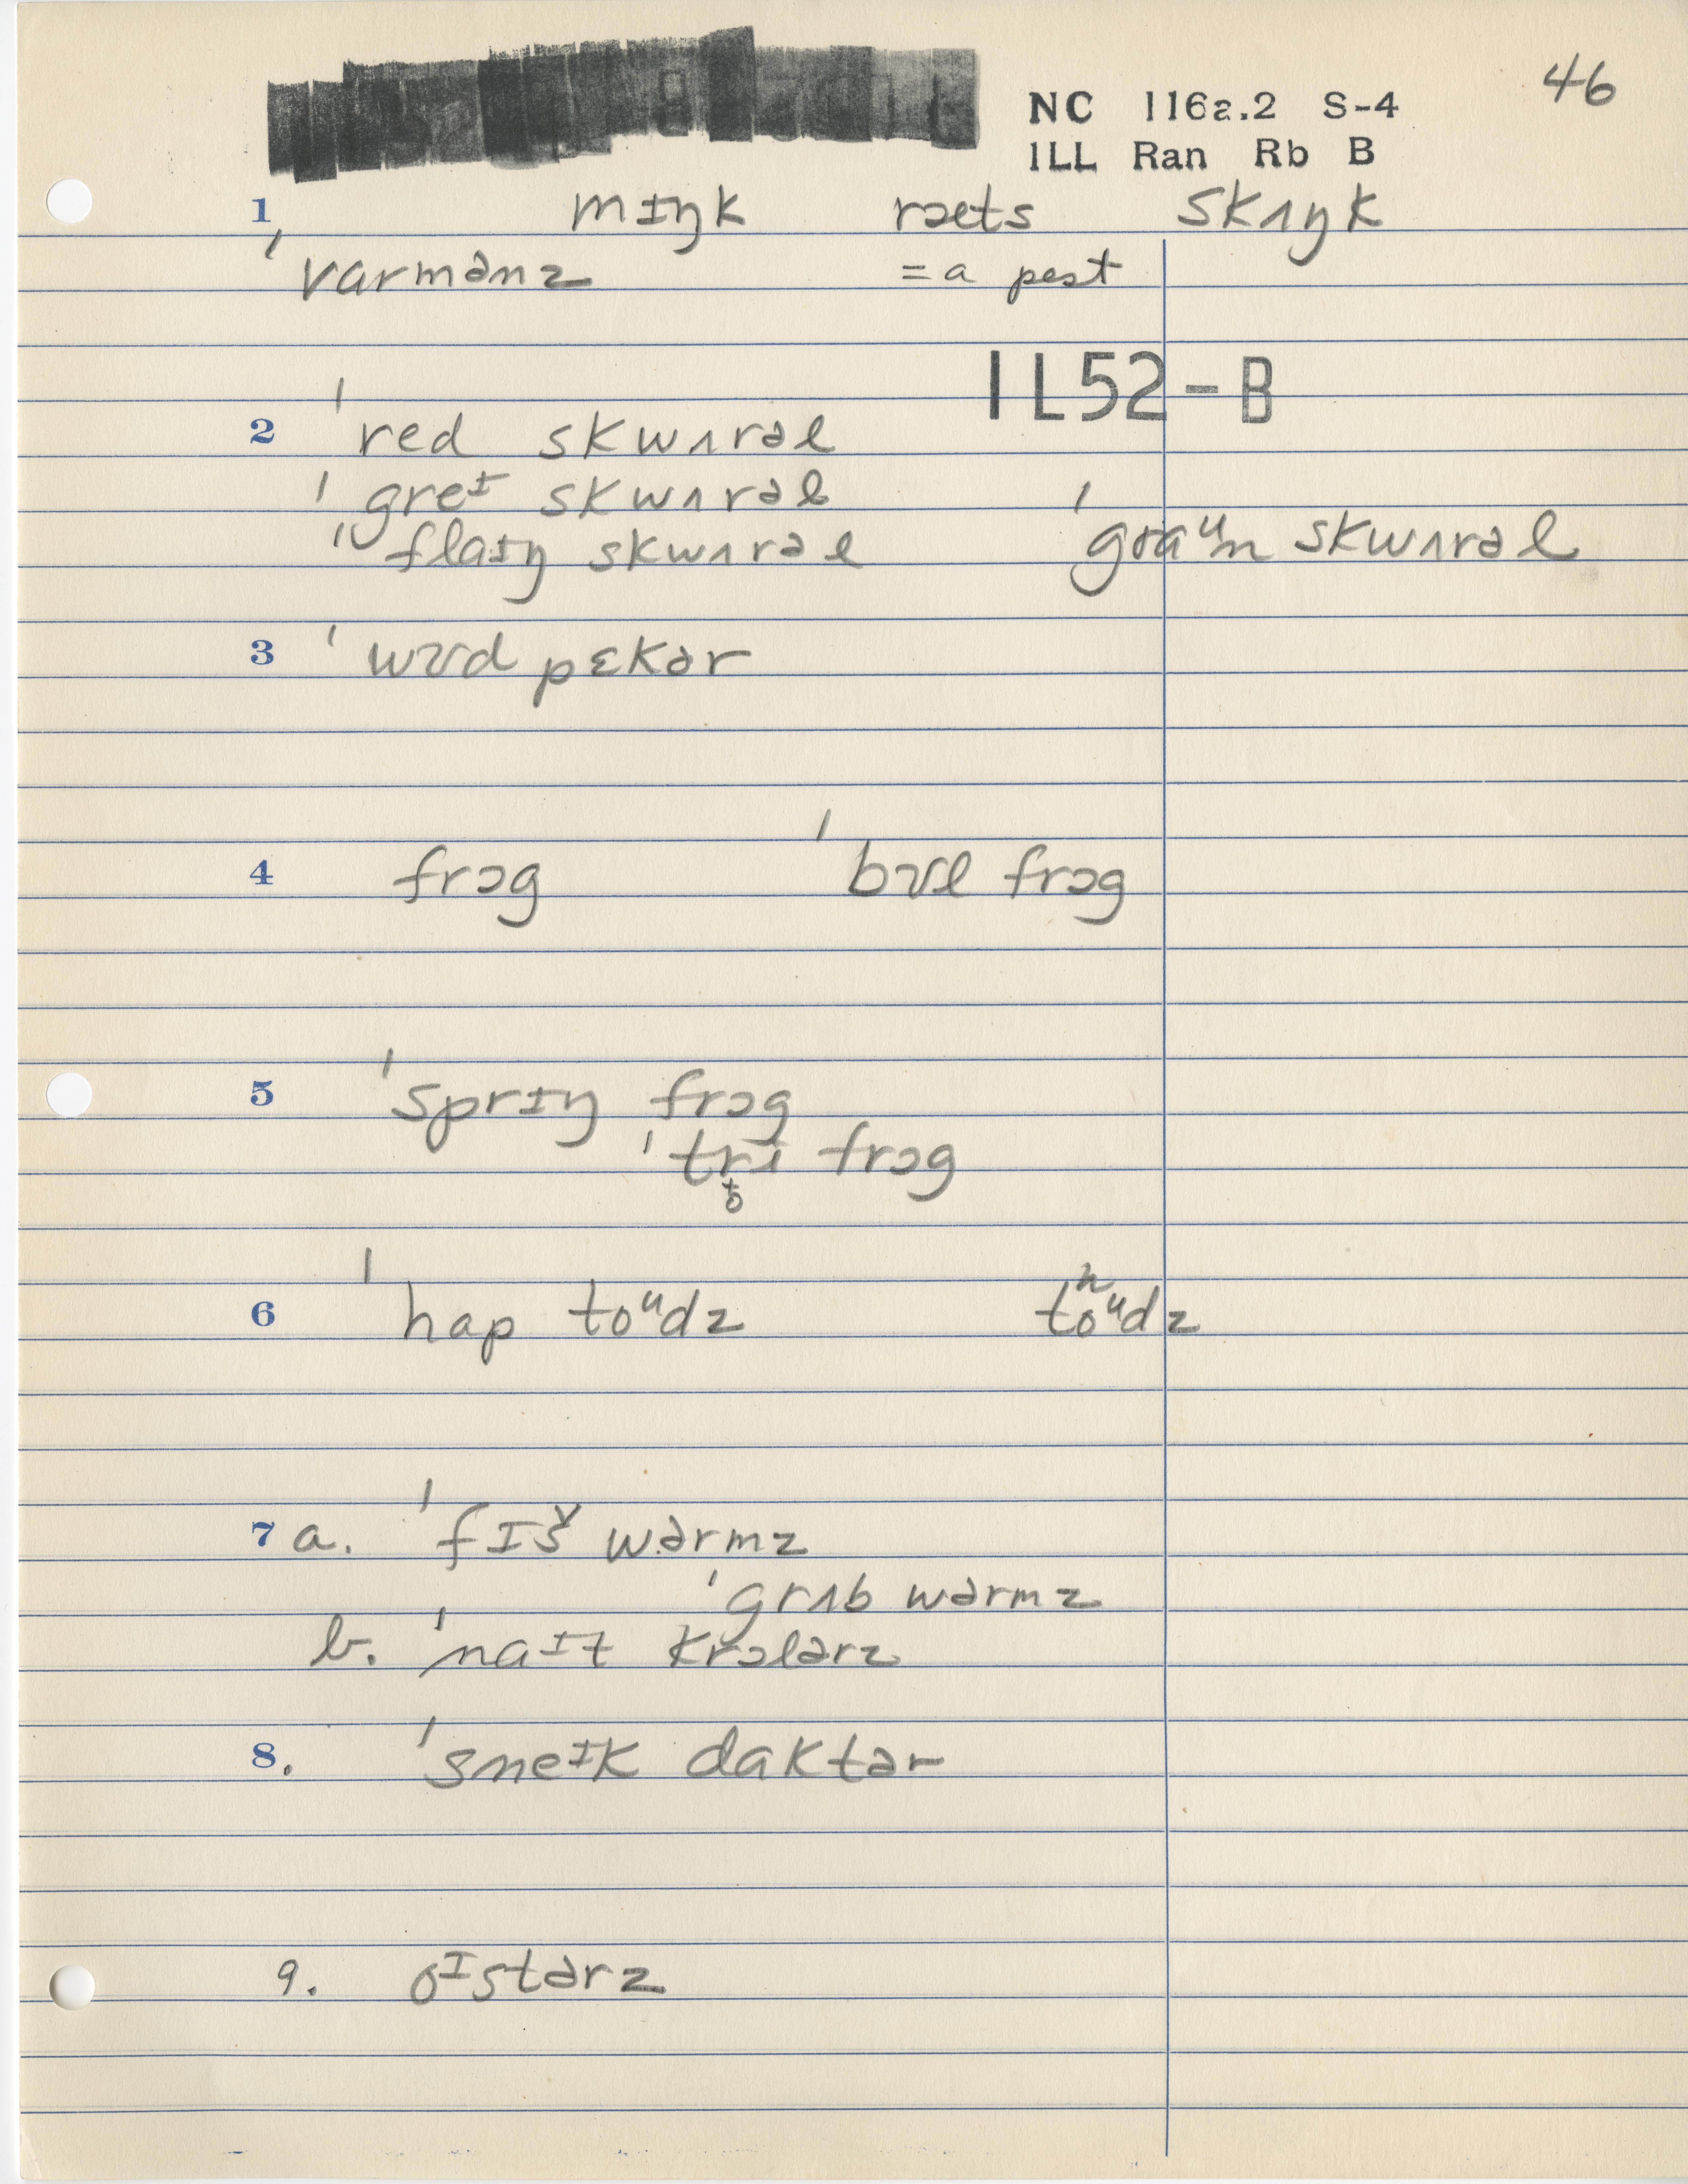 46
NC 116a.2 S-4
ILL Ran Rb B
1 mɪŋk ræts skʌŋk
ˈvarmənz =a pest
IL52-B
2 ˈred skwʌrəl
ˈgreᶦ skwʌrəl
ˈflaɪŋ skwʌrəl ˈgraᵘn skwʌrəl
3 ˈwʊd pɛkər
4 frɔg ˈbʊl frɔg
5 ˈsprɪŋ frɔg
ˈtri frɔg
6 ˈhap toᵘdz toᵘdz
7 a. ˈfɪš wərmz
ˈgrʌb wərmz
b. ˈnaɪt krɔlərz
8. ˈsneᶦk daktər
9. ɔᶦstərz